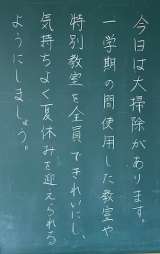 今日は大掃除があります。
一学期の間使用した教室や
特別教室を全員できれいにし、
気持ちよく夏休みを迎えられる
ようにしましょう。